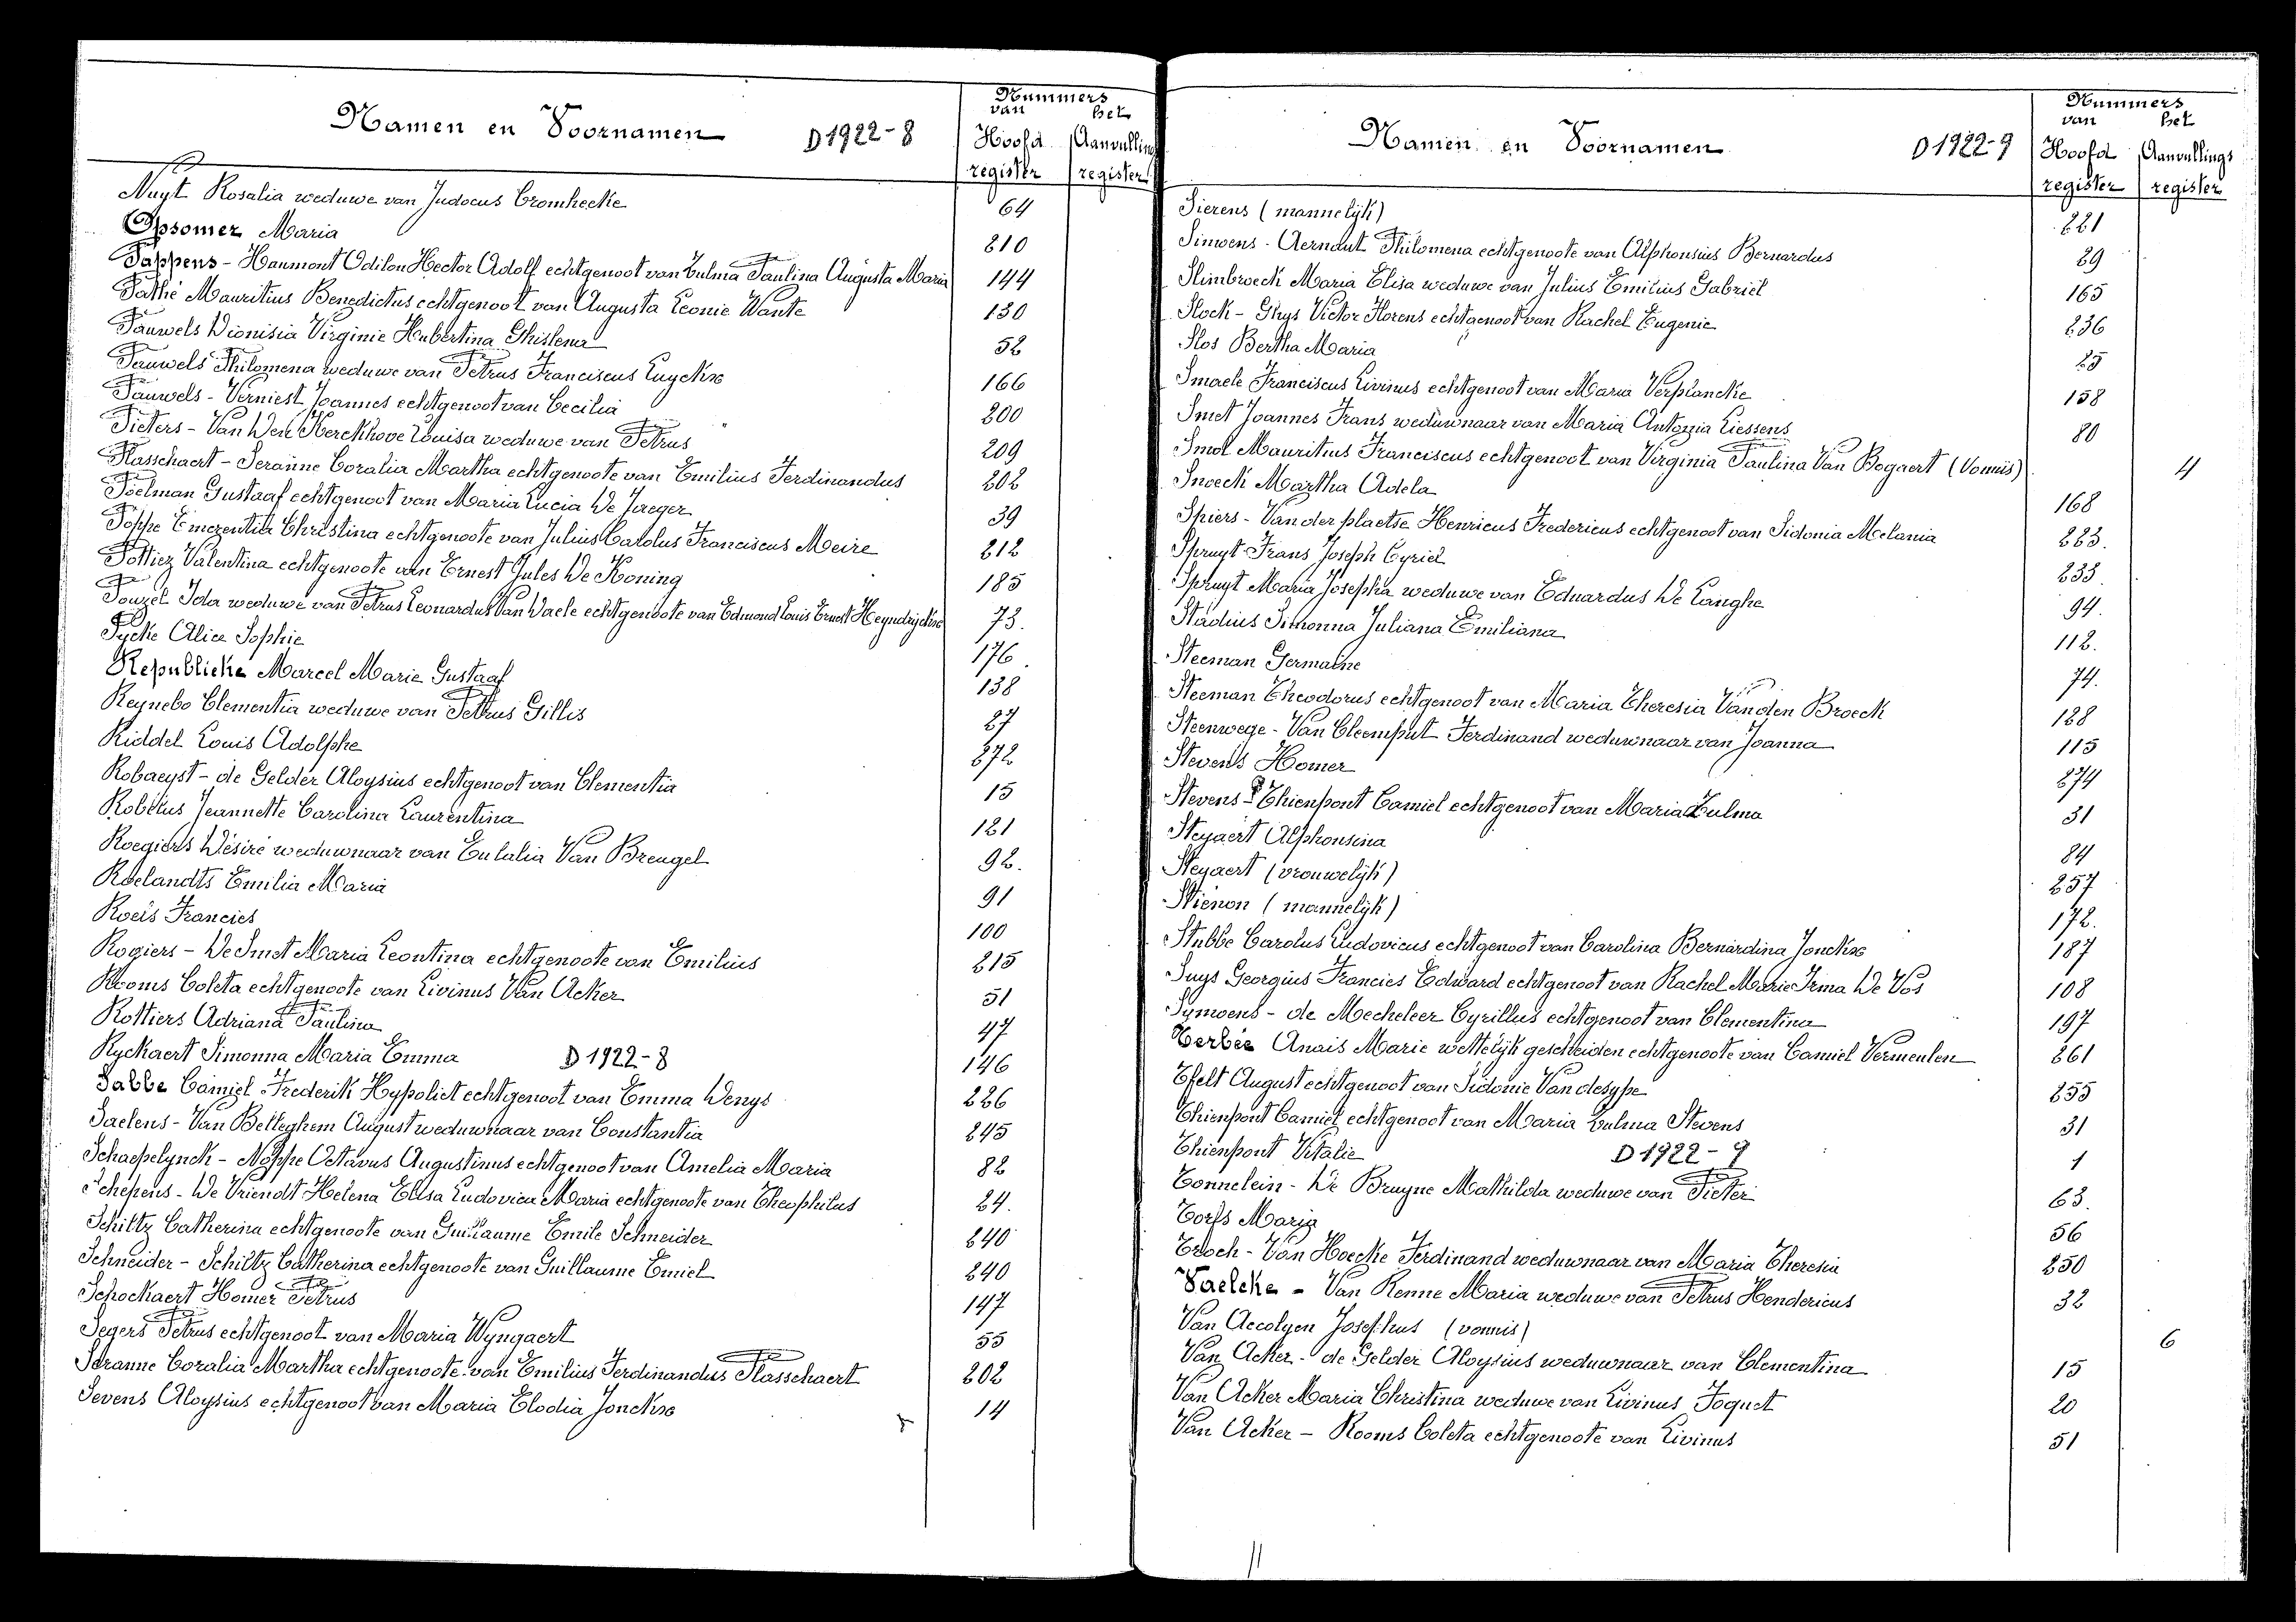 Namen en Voornamen
D 1922-8
Nummers
van het
Hoofd Aanvullings
register register
Nuyt Rosalia weduwe van Judocus Cromhecke 64
Opsomer Maria 210
Pappens - Haumont Odilon Hector Adolf echtgenoot van Zulma Paulina Augusta Maria 144
Pathé Mauritius Benedictus echtgenoot van Augusta Leonie Wante 130
Pauwels Dionisia Virginie Hubertina Ghislena 52
Pauwels Philomena weduwe van Petrus Franciscus Luyckx 166
Pauwels - Verniest Joannes echtgenoot van Cecilia 200
Pieters - Van Den Kerckhove Louisa weduwe van Petrus 209
Plasschaert - Seranne Coralia Martha echtgenoote van Emilius Ferdinandus 202
Poelman Gustaaf echtgenoot van Maria Lucia De Jaeger 39
Poppe Emerentia Christina echtgenoote van Julius Carolus Franciscus Meire 212
Pottiez Valentina echtgenoote van Ernest Jules De Koning 185
Pouzel Ida weduwe van Petrus Leonardus Van Daele echtgenoote van Edmond Louis Ernest Heyndrijckx 73.
Pycke Alice Sophie 176
Republieke Marcel Marie Gustaaf 138
Reynebo Clementia weduwe van Petrus Gillis 27
Riddel Louis Adolphe 272
Robaeyst - de Gelder Aloysius echtgenoot van Clementia 15
Robetus Jeannette Carolina Laurentina 121
Roegiers Désiré weduwnaar van Eulalia Van Breugel 92.
Roelandts Emilia Maria 91
Roels Francies 100
Rogiers - De Smet Maria Leontina echtgenoote van Emilius 215
Rooms Coleta echtgenoote van Livinus Van Acker 51
Rottiers Adriana Paulina 47
Ryckaert Simonna Maria Emma D 1922-8 146
Sabbe Camiel Frederik Hypoliet echtgenoot van Emma Denys 226
Saelens - Van Belleghem August weduwnaar van Constantia 245
Schaepelynck - Noppe Octavus Augustinus echtgenoot van Amelia Maria 82
Schepens - De Vriendt Helena Elisa Ludovica Maria echtgenoote van Theophilus 24.
Schiltz Catherina echtgenoote van Guillaume Emile Schneider 240
Schneider - Schiltz Catherina echtgenoote van Guillaume Emiel 240
Schockaert Homer Petrus 147
Segers Petrus echtgenoot van Maria Wyngaert 55
Seranne Coralia Martha echtgenoote van Emilius Ferdinandus Plasschaert 202
Sevens Aloysius echtgenoot van Maria Elodia Jonckx 14
Namen en Voornamen
D 1922-9
Nummers
van het
Hoofd Aanvullings
register register
Sierens (mannelijk) 221
Simoens - Aernaut Philomena echtgenoote van Alphonsius Bernardus 29
Slimbroeck Maria Elisa weduwe van Julius Emilius Gabriël 165
Slock - Ghys Victor Florens echtgenoot van Rachel Eugenie 236
Slos Bertha Maria 25
Smaele Franciscus Livinus echtgenoot van Maria Verplancke 158
Smet Joannes Frans weduwnaar van Maria Antonia Liessens 80
Smol Mauritius Franciscus echtgenoot van Virginia Paulina Van Bogaert (Vonnis) 4
Snoeck Martha Adela 168
Spiers - Van der plaetse Henricus Fredericus echtgenoot van Sidonia Melania 223.
Spruyt Frans Joseph Cyriel 233
Spruyt Maria Josepha weduwe van Eduardus De Langhe 94.
Stadius Simonna Juliana Emiliana 112.
Steeman Germaine 74.
Steeman Theodorus echtgenoot van Maria Theresia Van den Broeck 128
Steenwege - Van Cleemput Ferdinand weduwnaar van Joanna 115
Stevens Homer 274
Stevens - Thienpont Camiel echtgenoot van Maria Zulma 31
Steyaert Alphonsina 84
Steyaert (vrouwelijk) 257
Stiénon (mannelijk) 172.
Stubbe Carolus Ludovicus echtgenoot van Carolina Bernardina Jonckx 187
Suys Georgius Francies Edward echtgenoot van Rachel Marie Irma De Vos 108
Symoens - de Mecheleer Cyrillus echtgenoot van Clementina 197
Terbée Anaïs Marie wettelijk gescheiden echtgenoote van Camiel Vermeulen 261
Tfelt August echtgenoot van Sidonie Van desype 255
Thienpont Camiel echtgenoot van Maria Zulma Stevens 31
Thienpont Vitalie D 1922-9 1
Tonnelein - De Bruyne Mathilda weduwe van Pieter 63.
Torfs Maria 56
Troch - Van Hoecke Ferdinand weduwnaar van Maria Theresia 250
Vaelcke - Van Renne Maria weduwe van Petrus Hendericus 32
Van Accolyen Josephus (vonnis) 6
Van Acker - de Gelder Aloysius weduwnaar van Clementina 15
Van Acker Maria Christina weduwe van Livinus Foquet 20
Van Acker - Rooms Coleta echtgenoote van Livinus 51